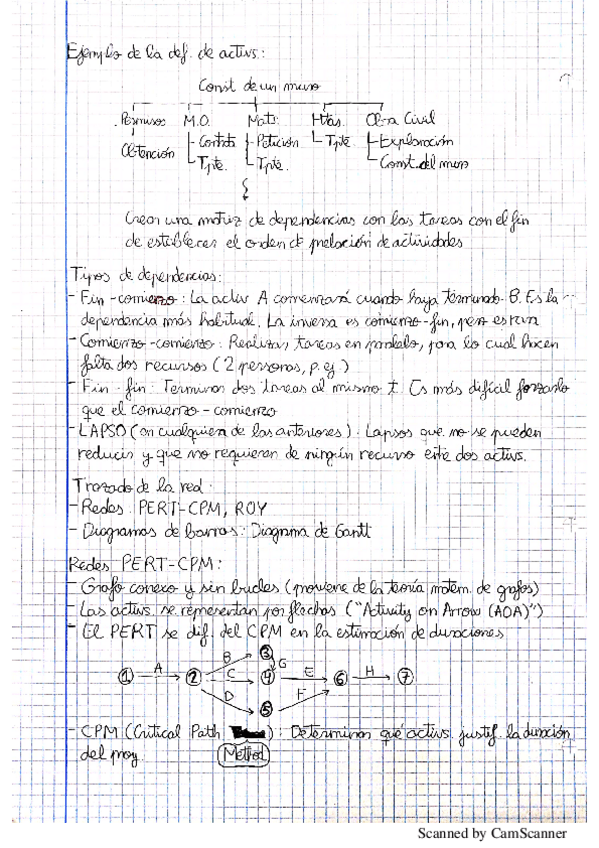 Ejemplo de la def. de activs.:
Const. de un muro
Permisos M.O. Mats. Htas. Obra Civil
Obtención Contrato Petición Tpte. Explanación
Tpte. Tpte. Const. del muro
Crear una matriz de dependencias con las tareas con el fin
de establecer el orden de prelación de actividades
Tipos de dependencias:
- Fin-comienzo: La activ A comenzará cuando haya terminado B. Es la
dependencia más habitual. La inversa es comienzo-fin, pero es rara
- Comienzo-comienzo: Realizar tareas en paralelo, para lo cual hacen
falta dos recursos (2 personas, p.ej.)
- Fin-fin: Terminar dos tareas al mismo t. Es más difícil forzarlo
que el comienzo-comienzo
- LAPSO (en cualquiera de las anteriores). Lapsos que no se pueden
reducir y que no requieren de ningún recurso entre dos activs.
Trazado de la red:
- Redes: PERT-CPM, ROY
- Diagramas de barras: Diagrama de Gantt
Redes PERT-CPM:
- Grafo conexo y sin bucles (proviene de la teoría matem. de grafos)
- Las activs. se representan por flechas ("Activity on Arrow (AOA)")
- El PERT se dif. del CPM en la estimación de duraciones
1 A 2 B 3 C 4 G E 6 H 7
D 5 F
- CPM (Critical Path ): Determinar qué activs. justif. la duración
del proy. Method
Scanned by CamScanner